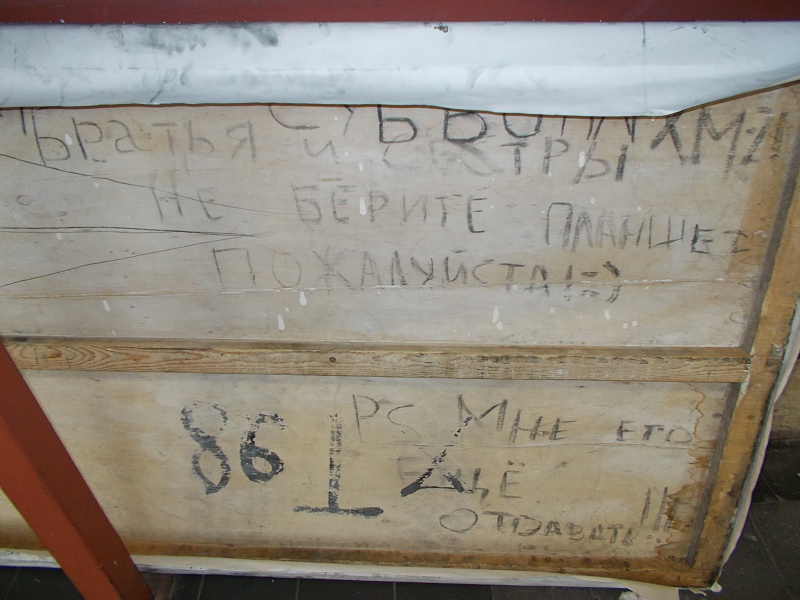 БРАТЬЯ И СЁСТРЫ
НЕ БЕРИТЕ ПЛАНШЕТ
ПОЖАЛУЙСТА!=)
PS МНЕ ЕГО
ЕЩЁ
ОТДАВАТЬ!!!
86